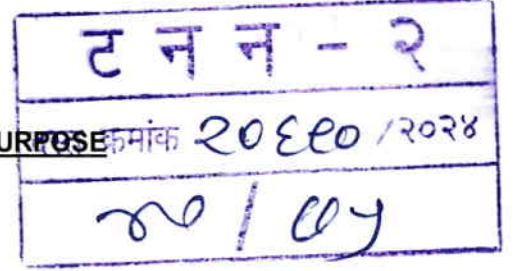 ट न न - २
URPOSE क्रमांक २०६९० / २०२४
/ ७५